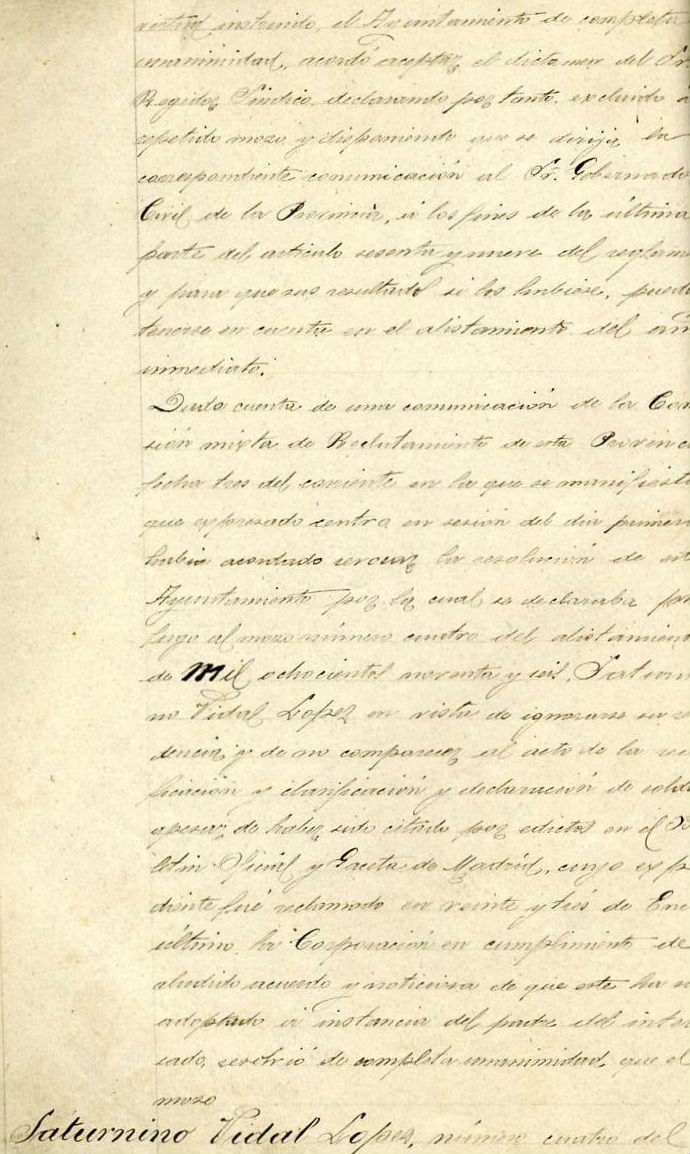 instruido, el Ayuntamiento de completa
unanimidad, acordó aceptar el dictamen del Sr.
Regidor Síndico, declarando por tanto, excluido a
repetido mozo y disponiendo que se dirija la
correspondiente comunicación al Sr. Gobernado
Civil de la Provincia, á los fines de la última
parte del artículo sesenta y nueve del reglam
y para que sus resultados si los hubiese, pueda
tenerse en cuenta en el alistamiento del
inmediato.
Dada cuenta de una comunicación de la Co
sión mixta de Reclutamiento de esta Provinc
fecha tres del corriente en la que se manifiesta
que expresado centro en sesión del dia primer
habia acordado revocar la resolución de est
Ayuntamiento por la cual, se declaraba pro
fugo al mozo número cuatro del alistamien
de Mil ochocientos noventa y seis, Saturni
no Vidal Lopez en vista de ignorarse su re
dencia, y de no comparecer al acto de la rec
ficación y clasificación y declaración de solda
apesar de haber sido citado por edictos en el B
letin Oficial y Gaceta de Madrid, cuyo expe
diente fué reclamado en veinte y tres de Ene
último, la Corporación en cumplimiento de
aludido acuerdo y noticiosa de que este ha s
adoptado á instancia del padre del intere
sado, resolvió de completa unanimidad, que el
mozo
Saturnino Vidal Lopez, número cuatro del